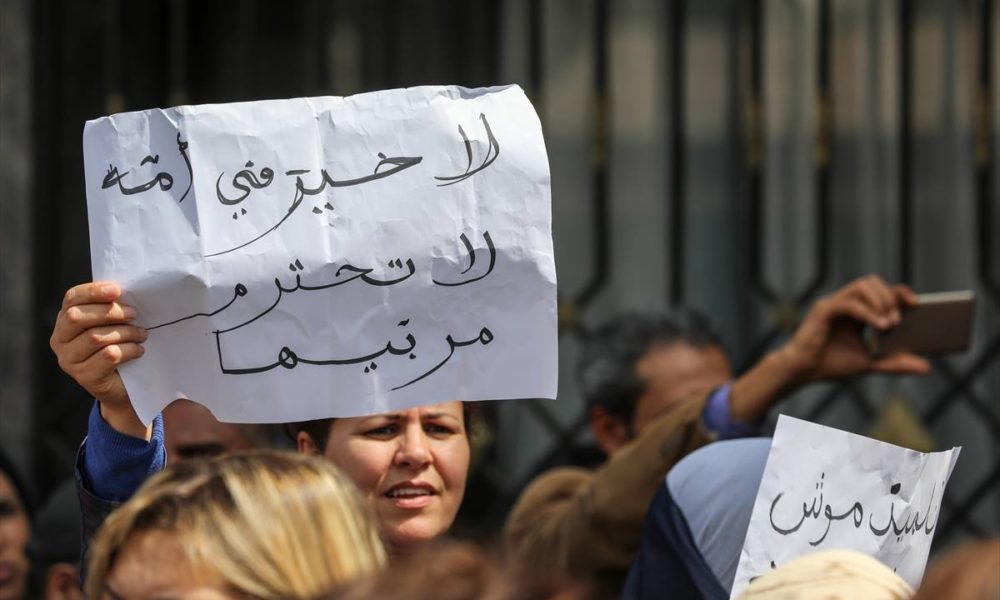 لا خير في أمّة
لا تحترم
مربّيها
تلميذ موش